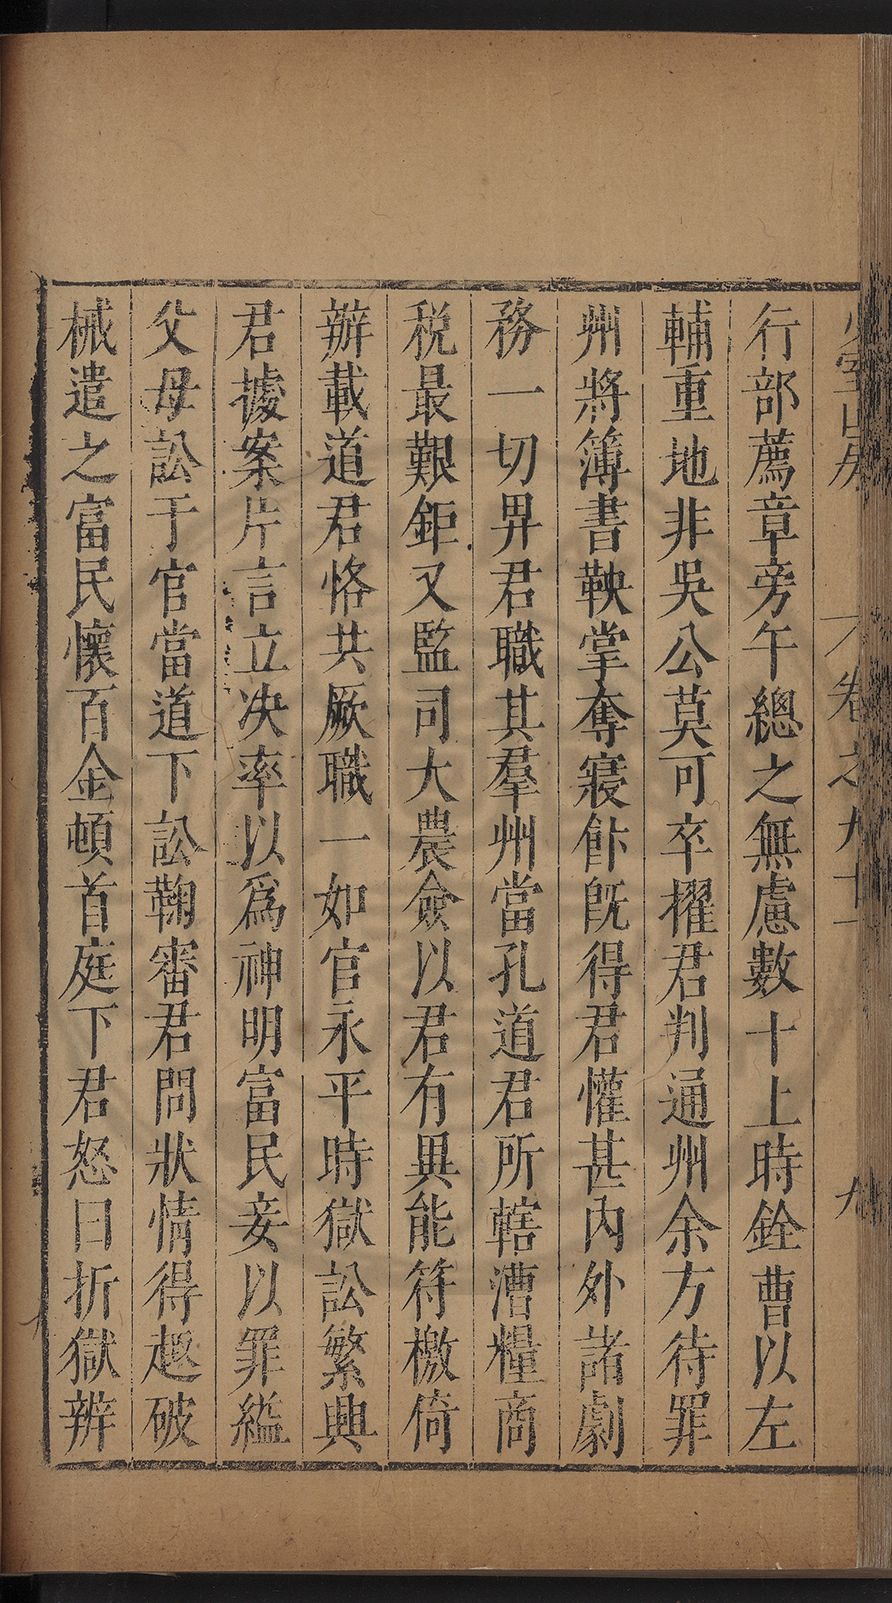 少室山房 卷之九十一 九
行部薦章旁午總之無慮數十上時銓曹以左
輔重地非吳公莫可卒擢君判通州余方待罪
州將簿書鞅掌奪寢飰旣得君懽甚內外諸劇
務一切畀君職其羣州當孔道君所轄漕糧商
税最艱鉅又監司大農僉以君有異能符檄倚
辦載道君恪共厥職一如官永平時獄訟繁興
君據案片言立决率以爲神明富民妾以罪縊
父母訟于官當道下訟鞠審君問狀情得趣破
械遣之富民懷百金頓首庭下君怒曰折獄辨